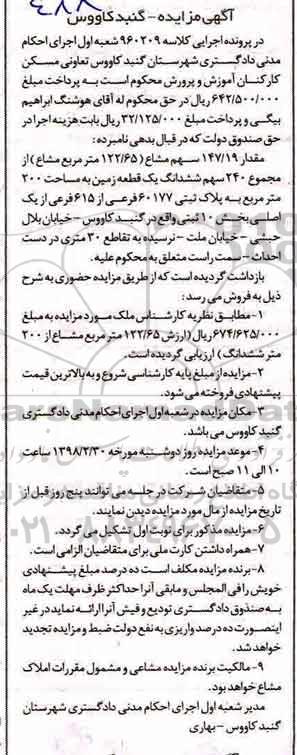 ۴۸۸
آگهی مزایده - گنبدکاووس
در پرونده اجرایی کلاسه ۹۶۰۲۰۹ شعبه اول اجرای احکام
مدنی دادگستری شهرستان گنبد کاووس تعاونی مسکن
کارکنان آموزش و پرورش محکوم است به پرداخت مبلغ
۶۴۲/۵۰۰/۰۰۰ ریال در حق محکوم له آقای هوشنگ ابراهیم
بیگی و پرداخت مبلغ ۳۲/۱۲۵/۰۰۰ ریال بابت هزینه اجرا در
حق صندوق دولت که در قبال بدهی نامبرده:
مقدار ۱۴۷/۱۹ سهم مشاع (۱۲۲/۶۵ متر مربع مشاع) از
مجموع ۲۴۰ سهم ششدانگ یک قطعه زمین به مساحت ۲۰۰
متر مربع به پلاک ثبتی ۶۰۱۷۷ فرعی از ۶۱۵ فرعی از یک
اصلی بخش ۱۰ ثبتی واقع در گنبد کاووس - خیابان بلال
حبشی - خیابان ملت - نرسیده به تقاطع ۳۰ متری در دست
احداث - سمت راست متعلق به محکوم علیه.
بازداشت گردیده است که از طریق مزایده حضوری به شرح
ذیل به فروش می رسد:
۱- مطابق نظریه کارشناس ملک مورد مزایده به مبلغ
۶۷۴/۶۲۵/۰۰۰ ریال (ارزش ۱۲۲/۶۵ متر مربع مشاع از ۲۰۰
متر ششدانگ) ارزیابی گردیده است.
۲- مزایده از مبلغ پایه کارشناسی شروع و به بالاترین قیمت
پیشنهادی فروخته می شود.
۳- مکان مزایده در شعبه اول اجرای احکام مدنی دادگستری
گنبد کاووس می باشد.
۴- موعد مزایده روز دوشنبه مورخه ۱۳۹۸/۲/۳۰ ساعت
۱۰ الی ۱۱ صبح است.
۵- متقاضیان شرکت در جلسه می توانند پنج روز قبل از
تاریخ مزایده از مال مورد مزایده دیدن نمایند.
۶- مزایده مذکور برای نوبت اول تشکیل می گردد.
۷- همراه داشتن کارت ملی برای متقاضیان الزامی است.
۸- برنده مزایده مکلف است ده درصد مبلغ پیشنهادی
خویش را فی المجلس و مابقی آنرا حداکثر ظرف مهلت یک ماه
به صندوق دادگستری تودیع و فیش آنرا ارائه نماید در غیر
اینصورت ده درصد واریزی به نفع دولت ضبط و مزایده تجدید
خواهد شد.
۹- مالکیت برنده مزایده مشاعی و مشمول مقررات املاک
مشاع خواهد بود.
مدیر شعبه اول اجرای احکام مدنی دادگستری شهرستان
گنبد کاووس - بهاری